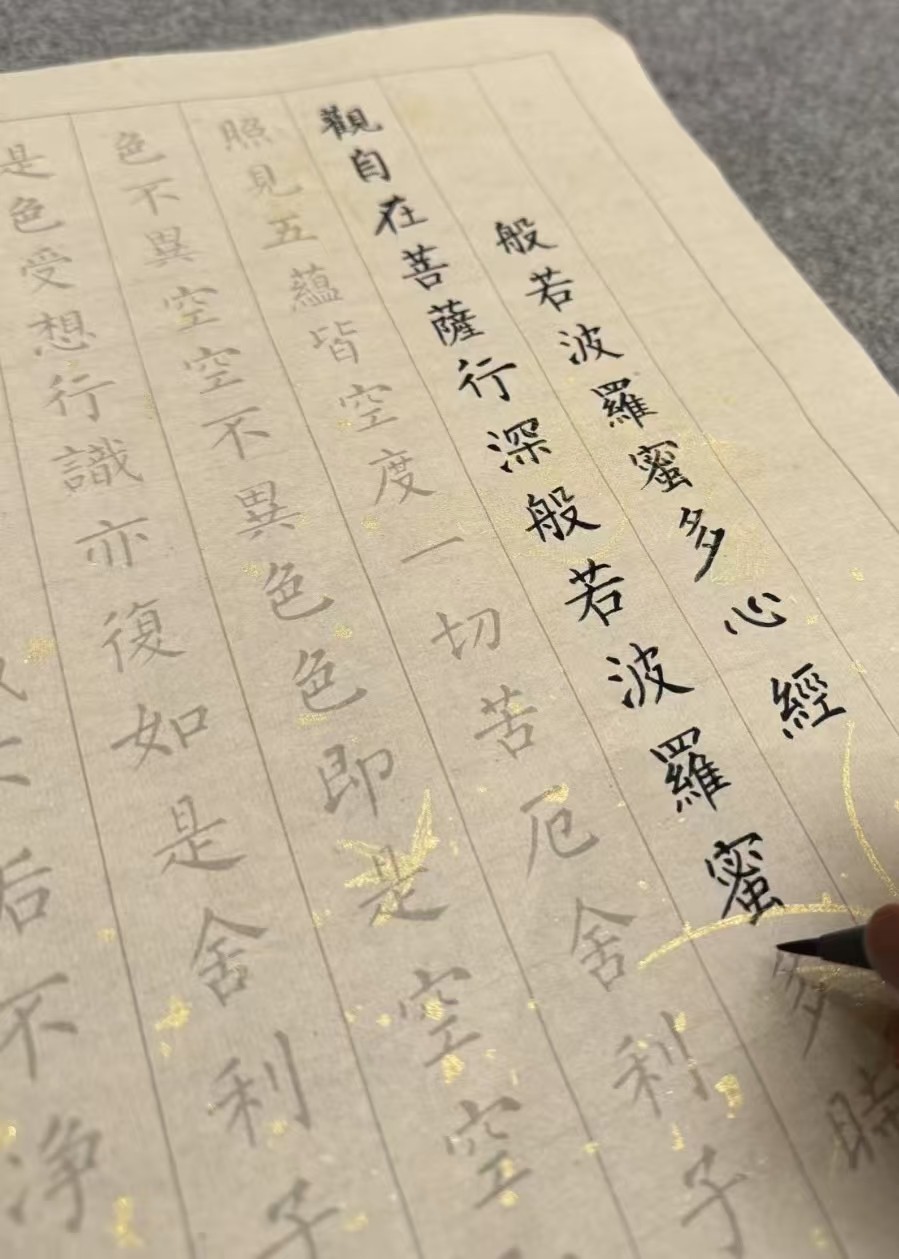 般若波羅蜜多心經
觀自在菩薩行深般若波羅蜜多時
照見五蘊皆空度一切苦厄舍利子
色不異空空不異色色即是空空
是色受想行識亦復如是舍利子
后不净